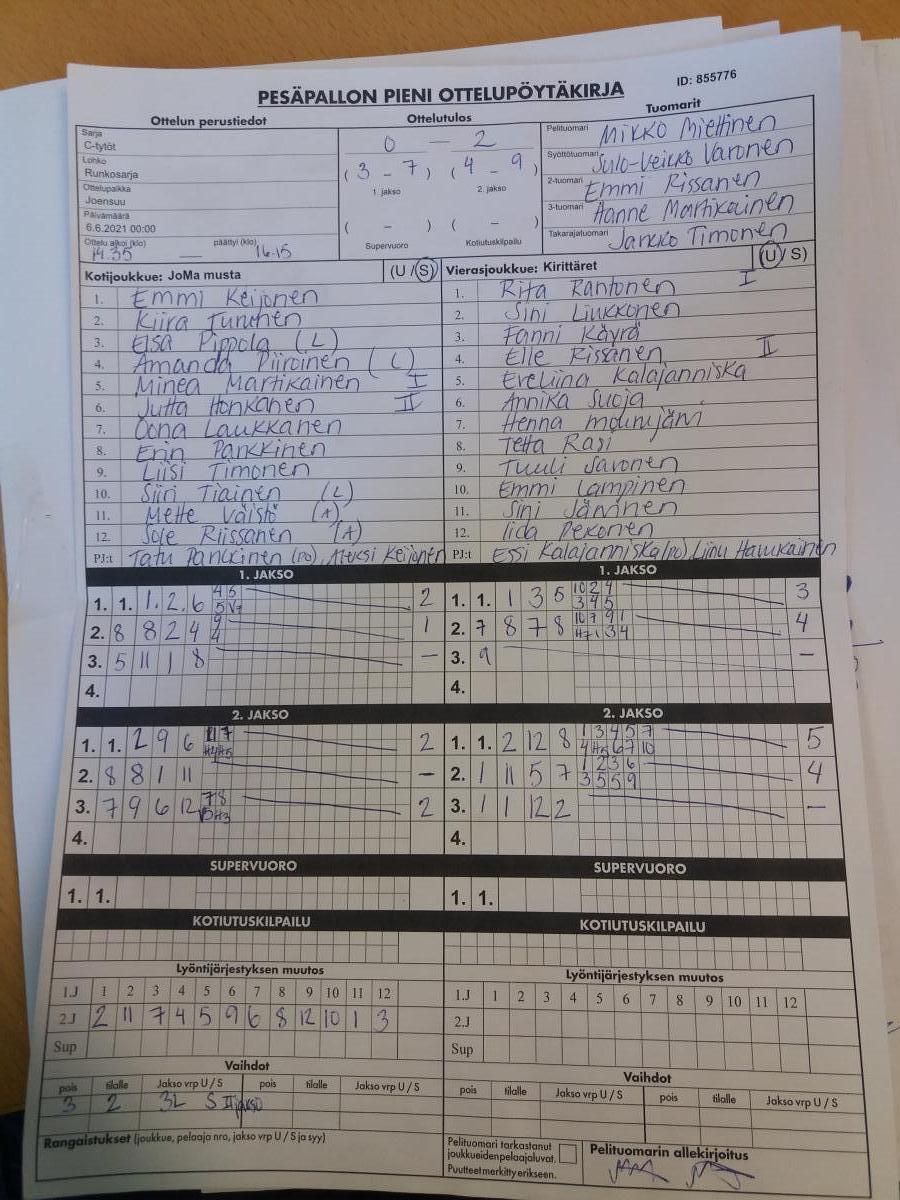 PESÄPALLON PIENI OTTELUPÖYTÄKIRJA
ID: 855776
Ottelun perustiedot
Sarja
C-tytöt
Lohko
Runkosarja
Ottelupaikka
Joensuu
Päivämäärä
6.6.2021 00:00
Ottelu alkoi (klo) päättyi (klo)
14.35 — 16.15
Ottelutulos
0 — 2
( 3 - 7 ) ( 4 - 9 )
1. jakso 2. jakso
( - ) ( - )
Supervuoro Kotiutuskilpailu
Tuomarit
Pelituomari Mikko Miettinen
Syöttötuomari Sulo-Veikko Varonen
2-tuomari Emmi Rissanen
3-tuomari Hanne Martikainen
Takarajatuomari Jarkko Timonen
Kotijoukkue: JoMa musta (U / S)
1. Emmi Keijonen
2. Kiira Turunen
3. Elsa Pippola (L)
4. Amanda Piiroinen (L)
5. Minea Martikainen I
6. Jutta Honkanen II
7. Oona Laukkanen
8. Erin Pankkinen
9. Liisi Timonen
10. Siiri Tiainen (L)
11. Mette Väistö (A)
12. Sole Riissanen (A)
PJ:t Tatu Pankkinen (PJ), Aleksi Keijonen
Vierasjoukkue: Kirittäret (U / S)
1. Rita Rantonen I
2. Sini Liukkonen
3. Fanni Käyrä
4. Elle Rissanen II
5. Eveliina Kalajanniska
6. Annika Suoja
7. Henna Mournjärvi
8. Tetta Rasi
9. Tuuli Savonen
10. Emmi Lampinen
11. Sini Järvinen
12. Iida Pekonen
PJ:t Essi Kalajanniska (PJ), Liinu Haukkainen
1. JAKSO
1. 1. 1. 2. 6 2
2. 8 8 2 4 1
3. 5 11 1 8 —
4.
1. JAKSO
1. 1. 1 3 5 10 2 4 3
3 4 5
2. 7 8 7 8 4
3. 9 —
4.
2. JAKSO
1. 1. 2 9 6 11 7 2
H4 H5
2. 8 8 1 11 —
3. 7 9 6 12 7 8 2
4.
2. JAKSO
1. 1. 2 12 8 1 3 4 5 7 5
4 H5 6 7 10
2. 1 11 5 7 1 2 3 6 4
3 5 5 9
3. 1 1 12 2 —
4.
SUPERVUORO
1. 1.
SUPERVUORO
1. 1.
KOTIUTUSKILPAILU
KOTIUTUSKILPAILU
Lyöntijärjestyksen muutos
1.J 1 2 3 4 5 6 7 8 9 10 11 12
2.J 2 11 7 4 5 9 6 8 12 10 1 3
Sup
Lyöntijärjestyksen muutos
1.J 1 2 3 4 5 6 7 8 9 10 11 12
2.J
Sup
Vaihdot
pois tilalle Jakso vrp U / S pois tilalle Jakso vrp U / S
3 2 3L S II jakso
Vaihdot
pois tilalle Jakso vrp U / S pois tilalle Jakso vrp U / S
Rangaistukset (joukkue, pelaaja nro, jakso vrp U / S ja syy)
Pelituomari tarkastanut
joukkueiden pelaajaluvat.
Puutteet merkitty erikseen.
Pelituomarin allekirjoitus